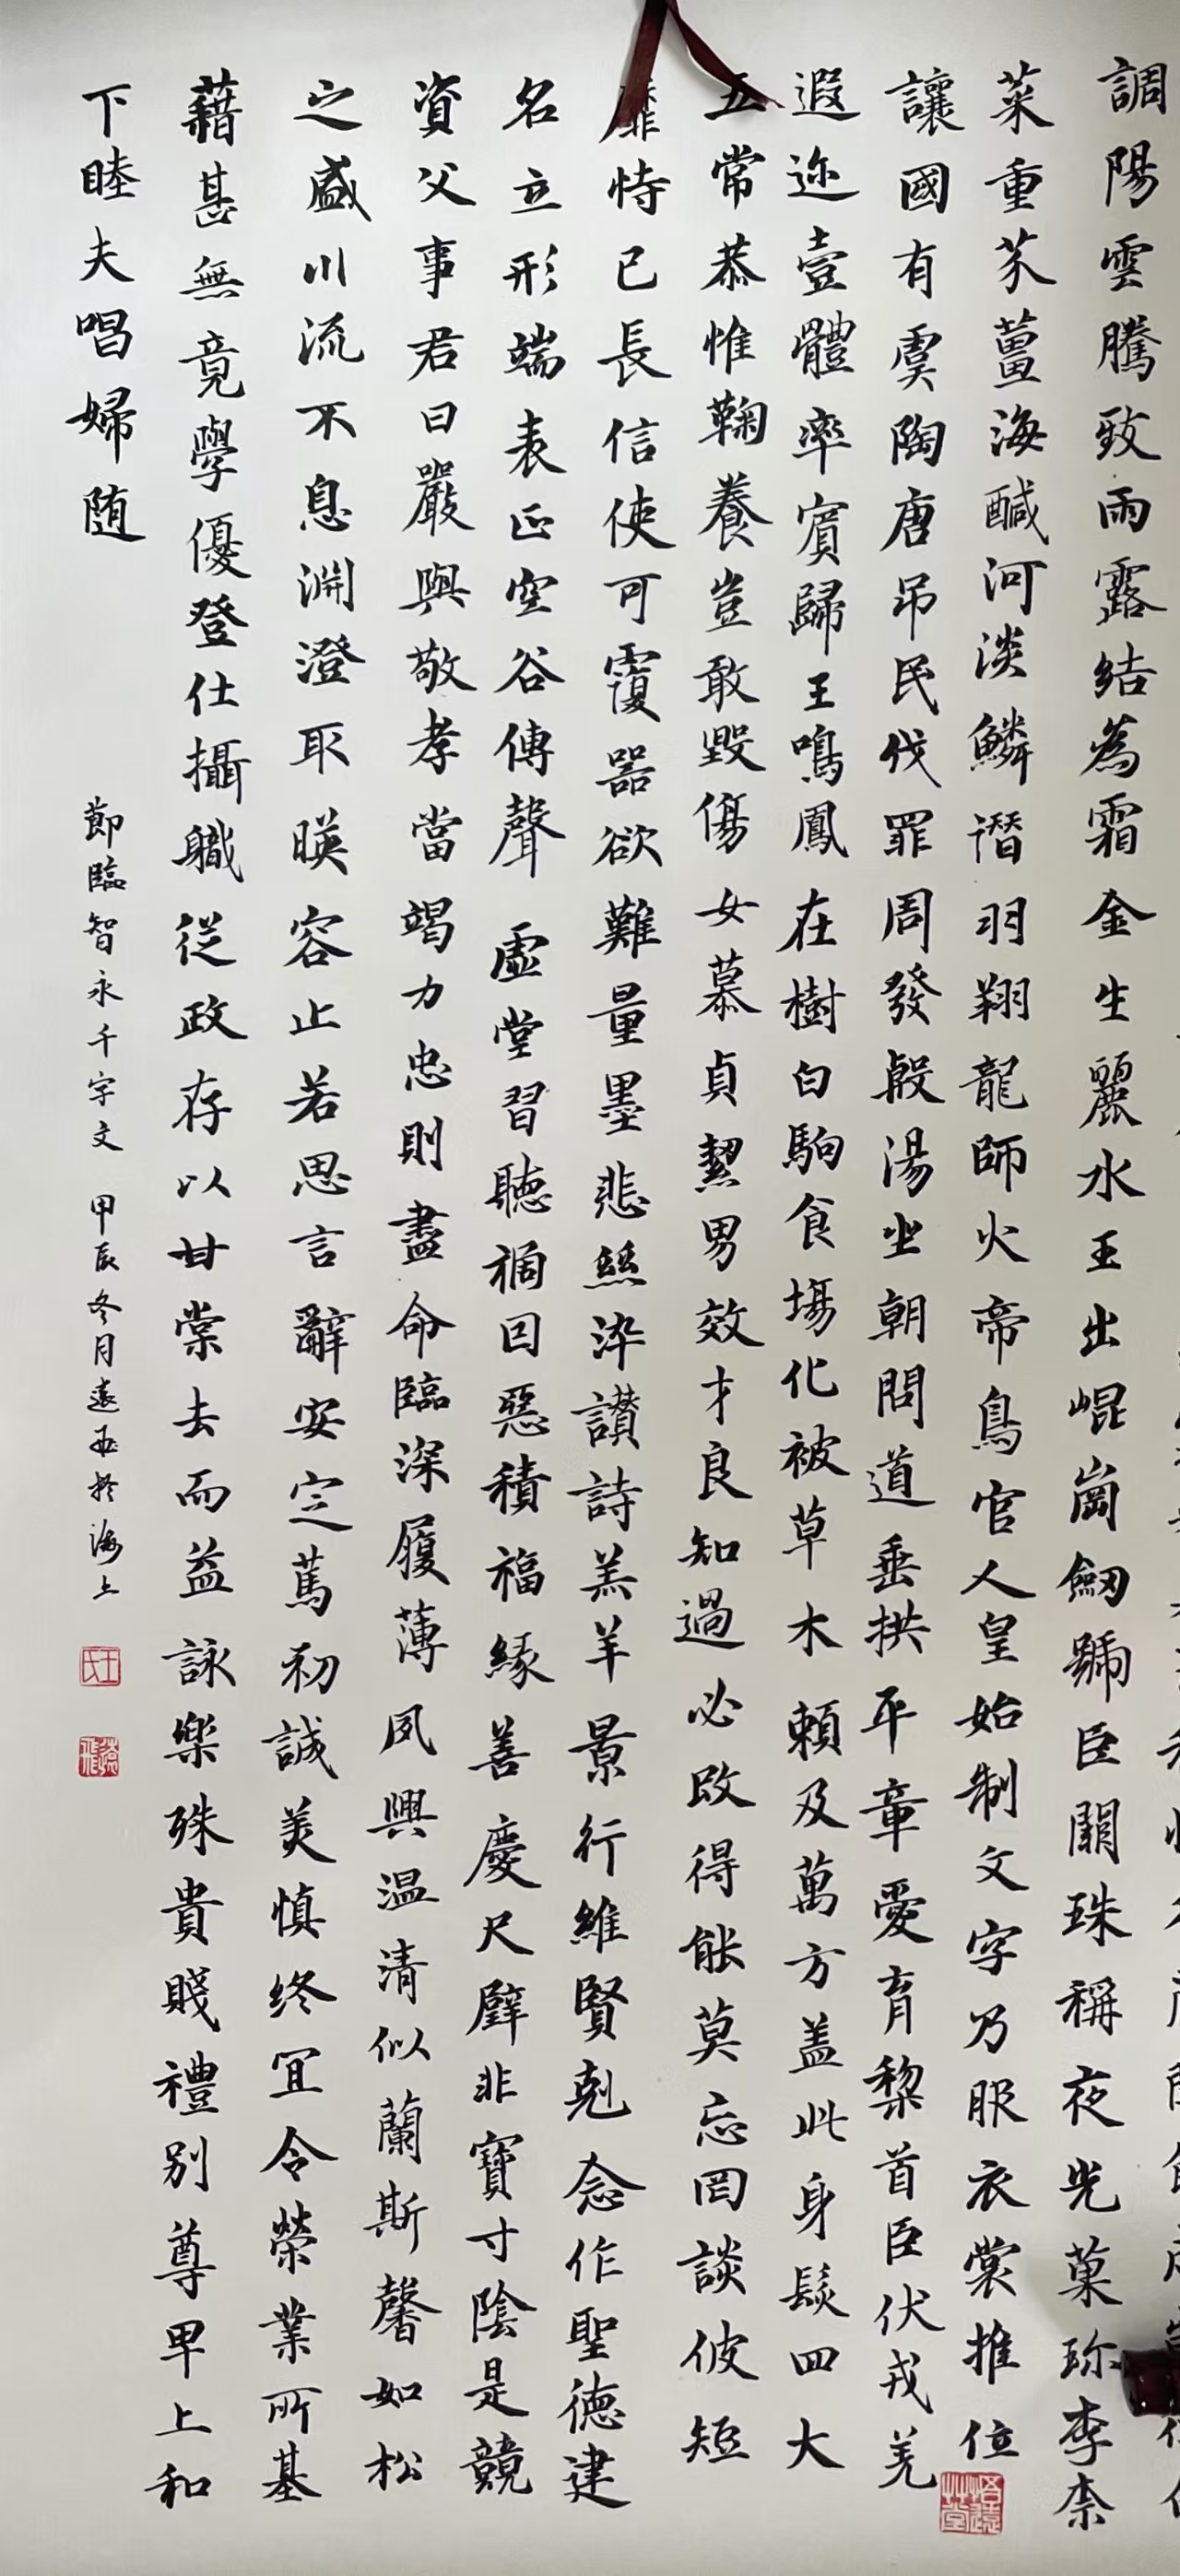 調陽雲騰致雨露結為霜金生麗水玉出崐崗劒號臣闕珠稱夜光菓珎李柰
菜重芥薑海醎河淡鱗潛羽翔龍師火帝鳥官人皇始制文字乃服衣裳推位
讓國有虞陶唐吊民伐罪周發殷湯坐朝問道垂拱平章愛育黎首臣伏戎羌
遐迩壹體率賓歸王鳴鳳在樹白駒食場化被草木賴及萬方盖此身髮四大
五常恭惟鞠養豈敢毀傷女慕貞絜男效才良知過必改得能莫忘罔談彼短
靡恃己長信使可覆器欲難量墨悲絲染讃詩羔羊景行維賢剋念作聖德建
名立形端表正空谷傳聲虛堂習聽禍因惡積福緣善慶尺璧非寶寸陰是競
資父事君曰嚴與敬孝當竭力忠則盡命臨深履薄夙興温清似蘭斯馨如松
之盛川流不息淵澄取暎容止若思言辭安定篤初誠美慎终宜令榮業所基
藉甚無竟學優登仕攝職從政存以甘棠去而益詠樂殊貴賤禮别尊卑上和
下睦夫唱婦随
節臨智永千字文 甲辰冬月遠飛於海上
王氏